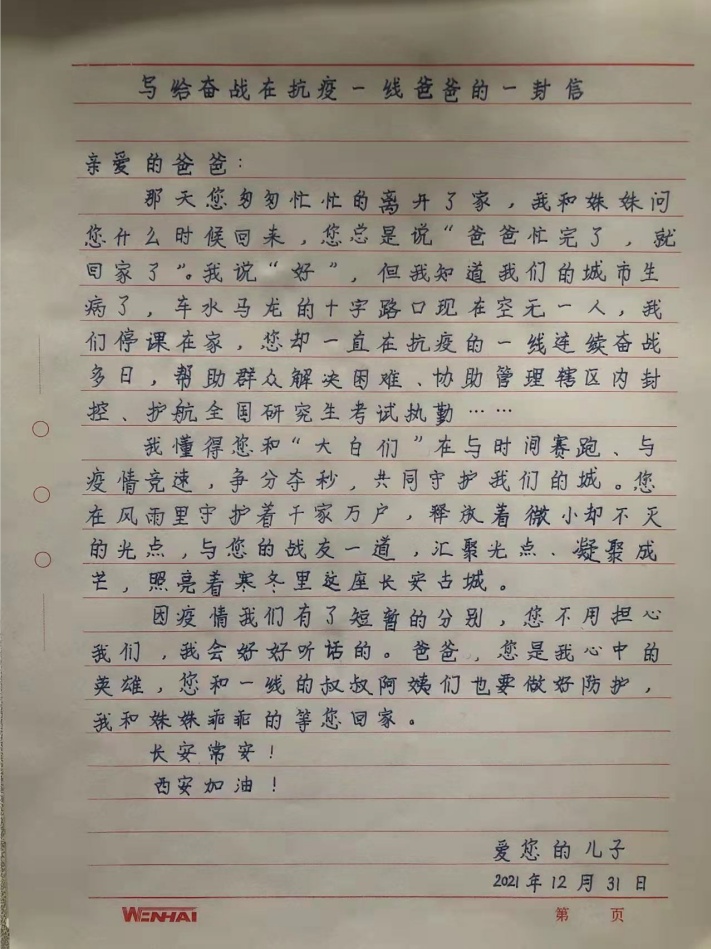 写给奋战在抗疫一线爸爸的一封信
亲爱的爸爸：
那天您匆匆忙忙的离开了家，我和妹妹问
您什么时候回来，您总是说“爸爸忙完了，就
回家了”。我说“好”，但我知道我们的城市生
病了，车水马龙的十字路口现在空无一人，我
们停课在家，您却一直在抗疫的一线连续奋战
多日，帮助群众解决困难、协助管理辖区内封
控、护航全国研究生考试执勤……
我懂得您和“大白们”在与时间赛跑、与
疫情竞速，争分夺秒，共同守护我们的城。您
在风雨里守护着千家万户，释放着微小却不灭
的光点，与您的战友一道，汇聚光点、凝聚成
芒，照亮着寒冬里这座长安古城。
因疫情我们有了短暂的分别，您不用担心
我们，我会好好听话的。爸爸，您是我心中的
英雄，您和一线的叔叔阿姨们也要做好防护，
我和妹妹乖乖的等您回家。
长安常安！
西安加油！
爱您的儿子
2021年12月31日
WENHAI 第 页